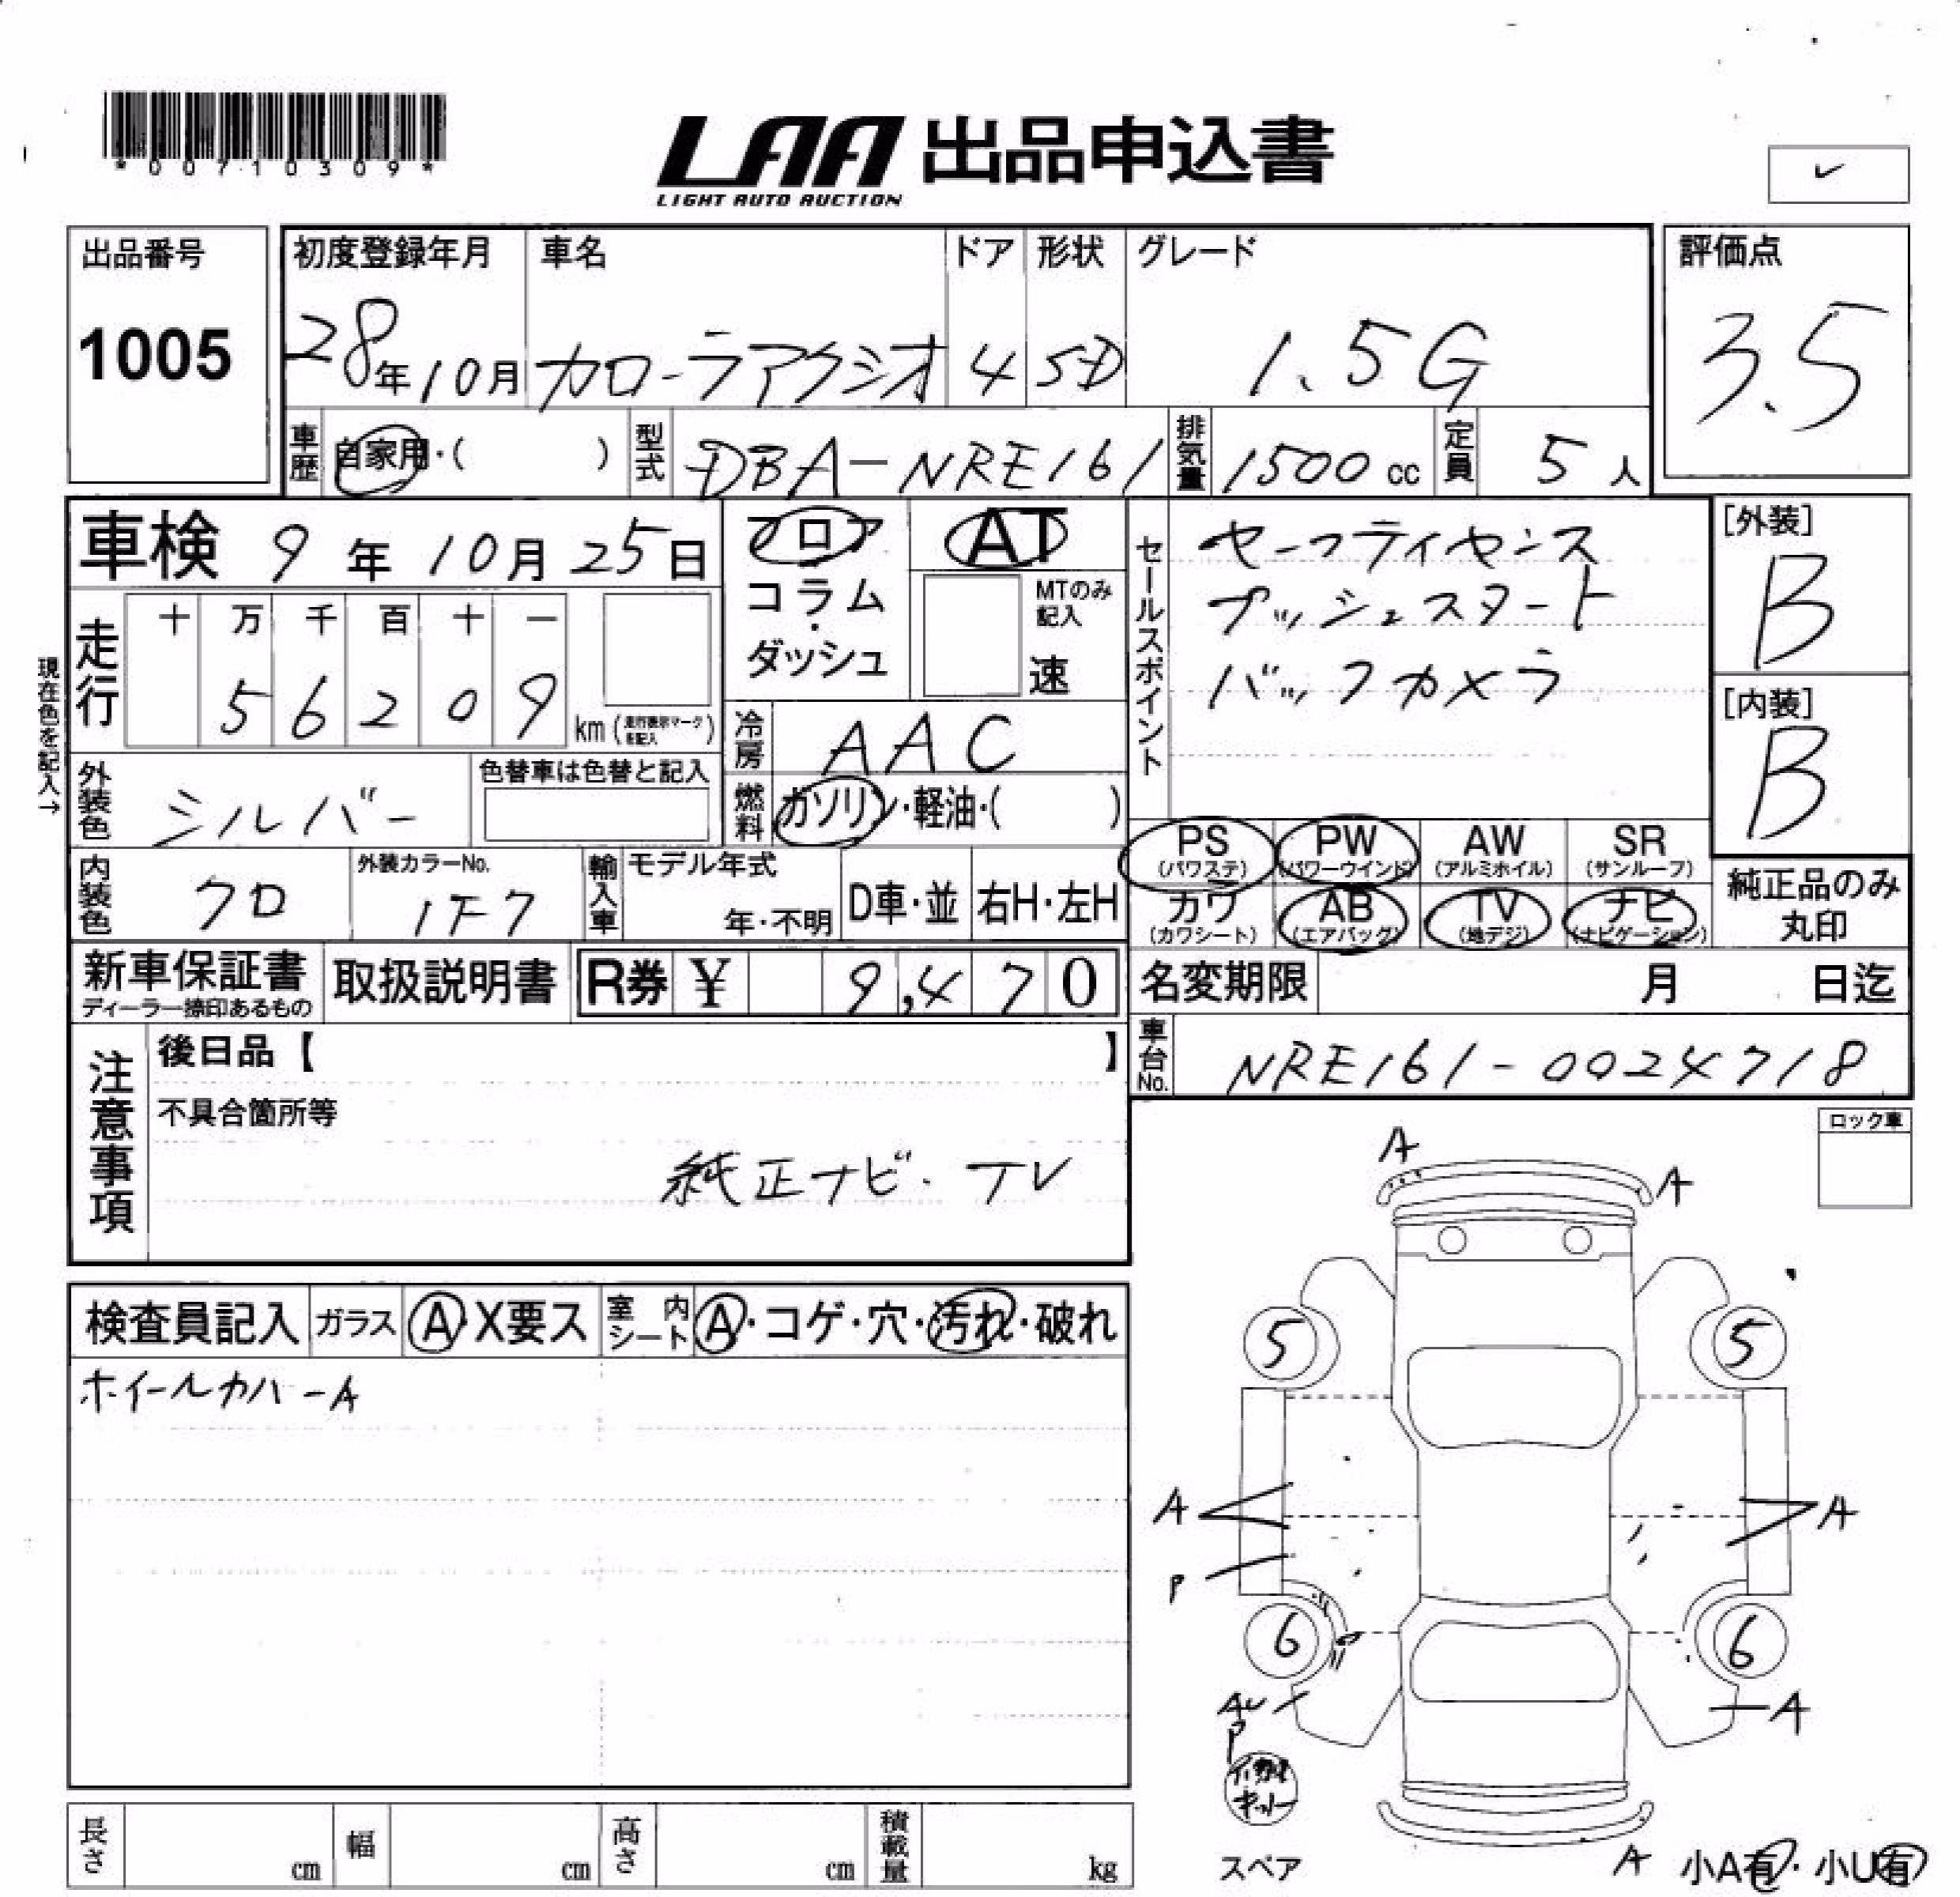 *00710309*
LAA 出品申込書
LIGHT AUTO AUCTION
出品番号
1005
初度登録年月
28年10月
車名
カローラアクシオ
ドア
4
形状
SD
グレード
1.5G
評価点
3.5
車歴
自家用・( )
型式
DBA-NRE161
排気量
1500cc
定員
5人
車検 9年10月25日
フロア
コラム
・
ダッシュ
AT
MTのみ
記入
速
セールスポイント
セーフティセンス
プッシュスタート
バックカメラ
[外装]
B
[内装]
B
現在色を記入→
走行
十 万 千 百 十 一
5 6 2 0 9
km(走行表示マークを記入)
冷房
AAC
外装色
シルバー
色替車は色替と記入
燃料
ガソリン・軽油・( )
PS
(パワステ)
PW
(パワーウインド)
AW
(アルミホイル)
SR
(サンルーフ)
カワ
(カワシート)
AB
(エアバッグ)
TV
(地デジ)
ナビ
(ナビゲーション)
純正品のみ
丸印
内装色
クロ
外装カラーNo.
1F7
輸入車
モデル年式
年・不明
D車・並
右H・左H
新車保証書
ディーラー捺印あるもの
取扱説明書
R券 ¥ 9,470
名変期限 月 日迄
車台No.
NRE161-0024718
注意事項
後日品【 】
不具合箇所等
純正ナビ・TV
ロック車
検査員記入
ガラス
A X要ス
室内シート
A・コゲ・穴・汚れ・破れ
ホイールカバーA
A
A
5
5
A
A
P
6
6
AU
P
A
キット
スペア
A
小A有・小U有
長さ cm
幅 cm
高さ cm
積載量 kg